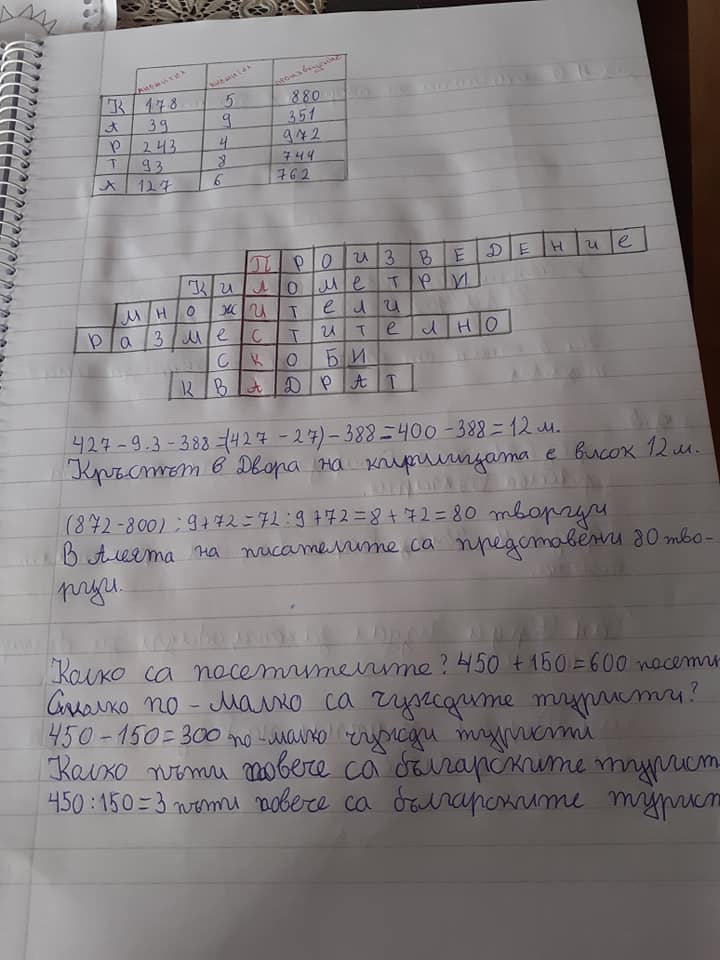 множител множител произведение
К 178 5 880
А 39 9 351
Р 243 4 972
Т 93 8 744
А 127 6 762
ПРОИЗВЕДЕНИЕ
КИЛОМЕТРИ
МНОЖИТЕЛИ
РАЗМЕСТИТЕЛНО
СКОБИ
КВАДРАТ
427-9.3-388=(427-27)-388=400-388=12 м.
Кръстът в Двора на кирилицата е висок 12 м.
(872-800):9+72=72:9+72=8+72=80 творци
В Алеята на писателите са представени 80 тво-
рци.
Колко са посетителите? 450+150=600 посети
С колко по-малко са чуждите туристи?
450-150=300 по-малко чужди туристи
Колко пъти повече са българските турист
450:150=3 пъти повече са българските турист